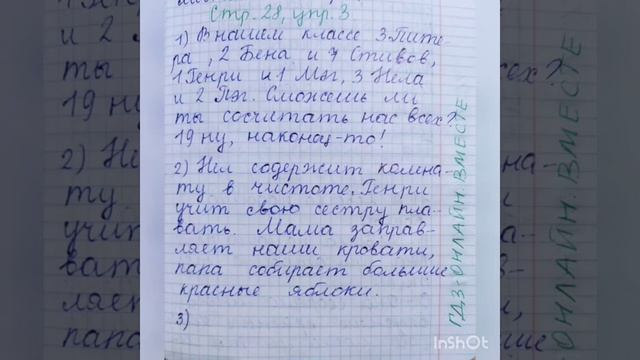 Стр. 28, упр. 3
1) В нашем классе 3 Пите-
ра, 2 Бена и 7 Стивов,
1 Генри и 1 Мэг, 3 Нела
и 2 Пэг. Сможешь ли
ты сосчитать нас всех?
19 ну, наконец-то!
2) Нел содержит комна-
ту в чистоте. Генри
учит свою сестру пла-
вать. Мама заправ-
ляет наши кровати,
папа собирает большие
красные яблоки.
3)
ГДЗ:ОНЛАЙН.ВМЕСТЕ
InShOt